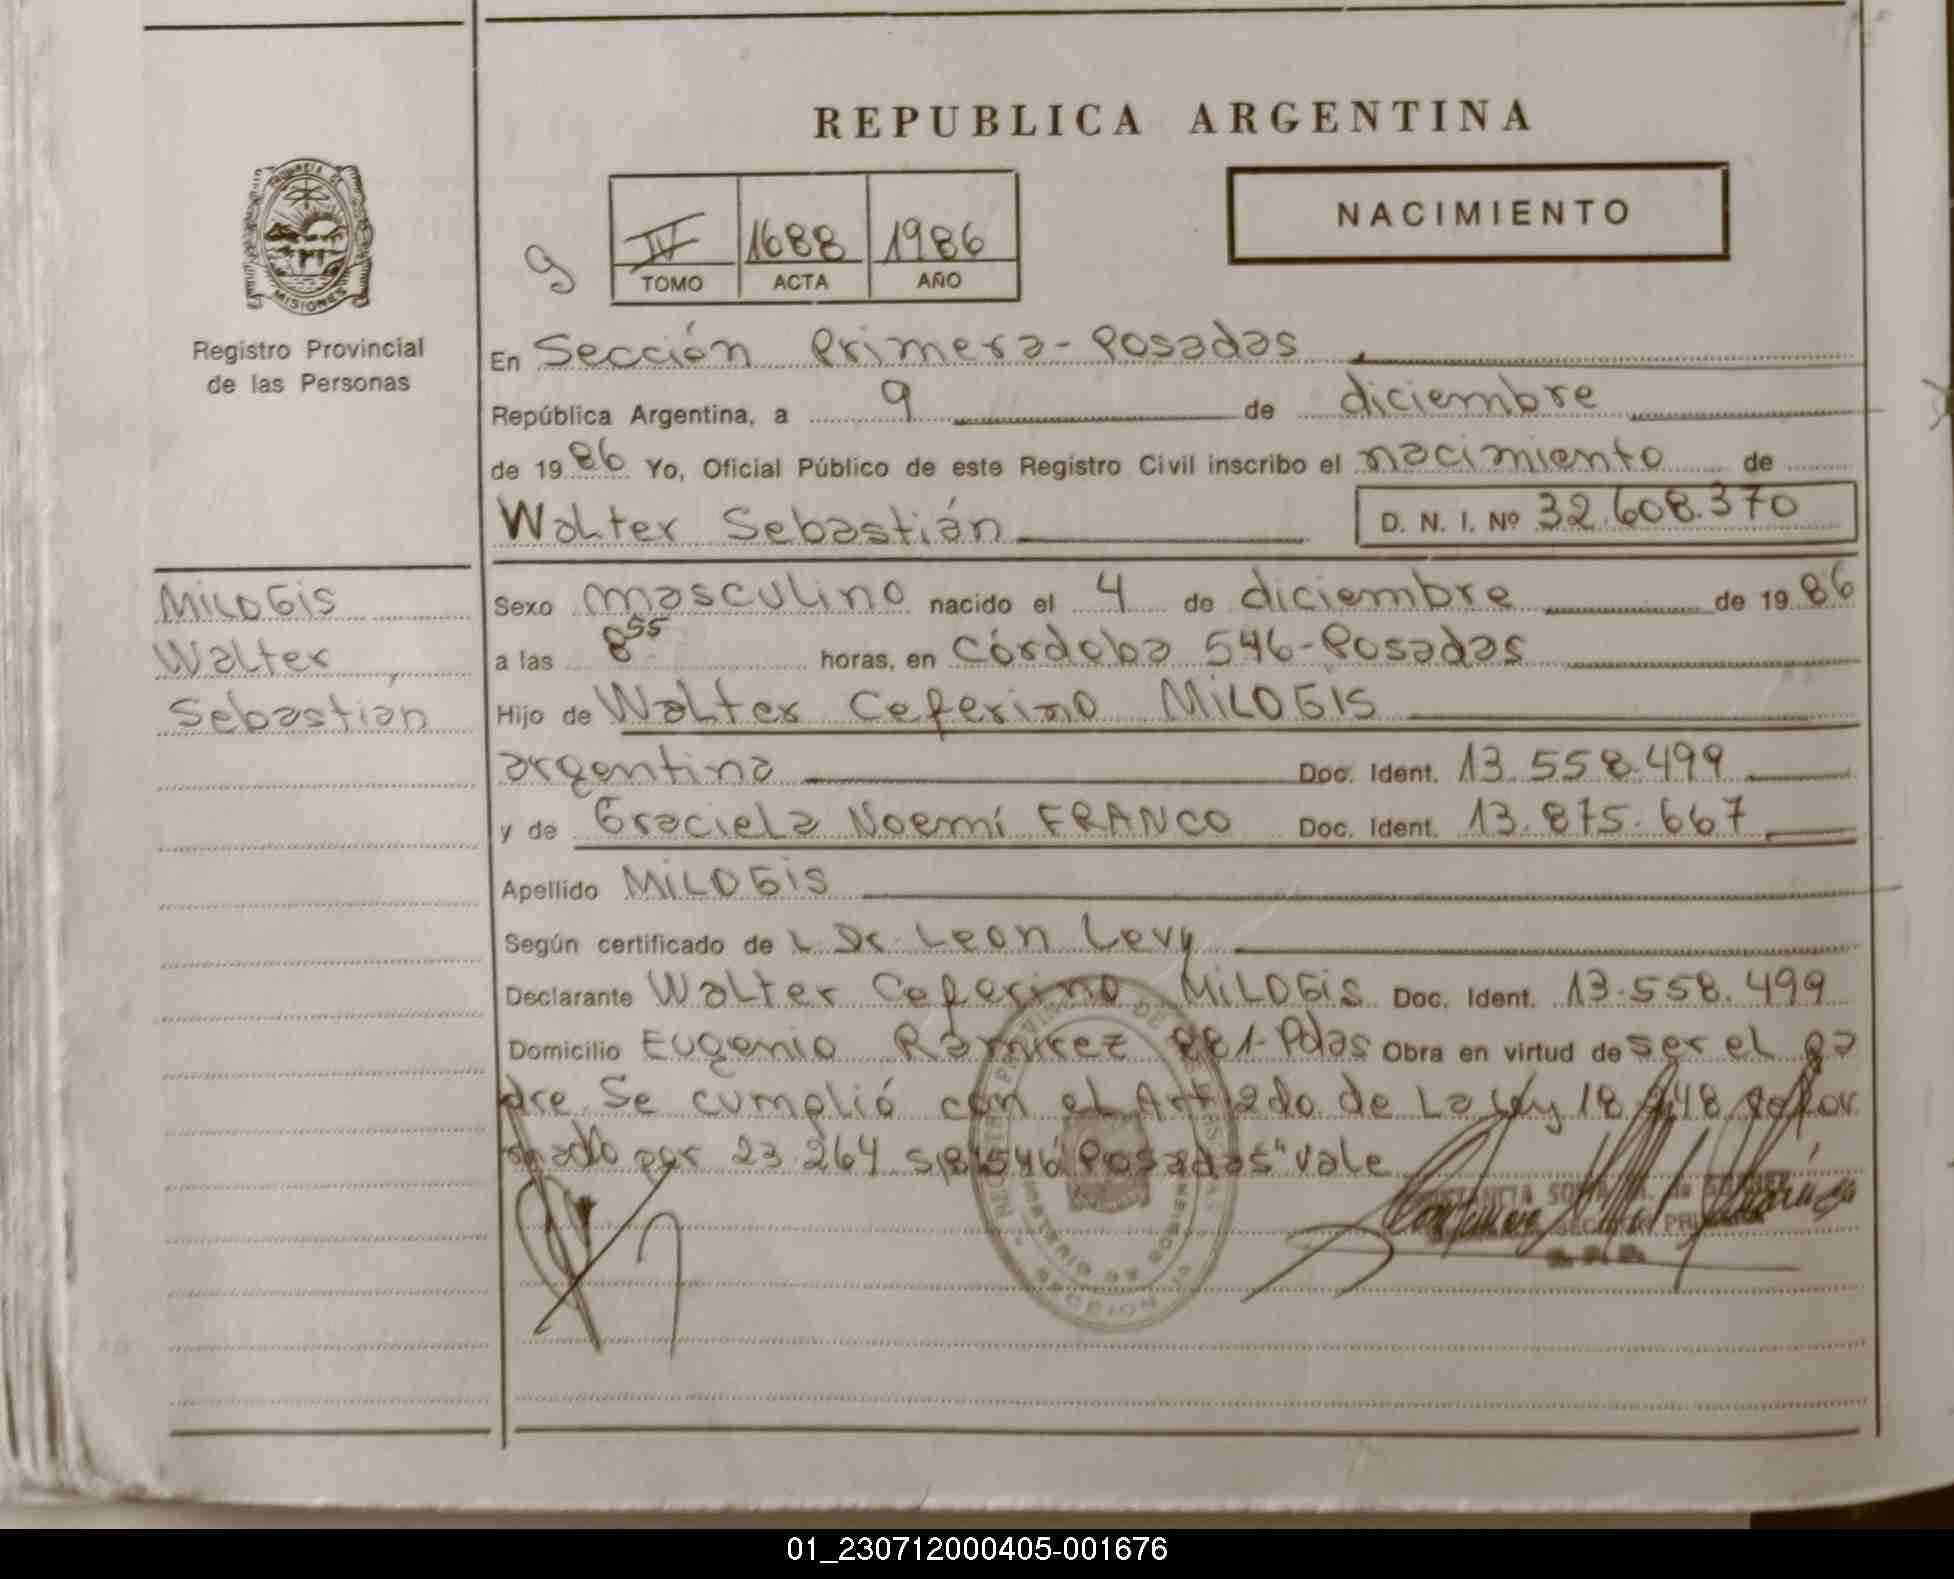 REPUBLICA ARGENTINA
NACIMIENTO
9
IV 1688 1986
TOMO ACTA AÑO
MISIONES
Registro Provincial
de las Personas
En Sección Primera - Posadas
República Argentina, a 9 de diciembre
de 1986 Yo, Oficial Público de este Registro Civil inscribo el nacimiento de
Walter Sebastián D. N. I. Nº 32.608.370
MILOGIS
Walter
Sebastián
Sexo masculino nacido el 4 de diciembre de 1986
a las 8 55 horas, en Córdoba 546-Posadas
Hijo de Walter Ceferino MILOGIS
argentina Doc. Ident. 13.558.499
y de Graciela Noemí FRANCO Doc. Ident. 13.875.667
Apellido MILOGIS
Según certificado de L Dr. Leon Levy
Declarante Walter Ceferino MILOGIS Doc. Ident. 13.558.499
Domicilio Eugenio Ramirez 881-Pdas Obra en virtud de ser el pa
dre. Se cumplió con el Art 2do de La Ley 18 248 refor
mado por 23.264 "Posadas" vale
01_230712000405-001676